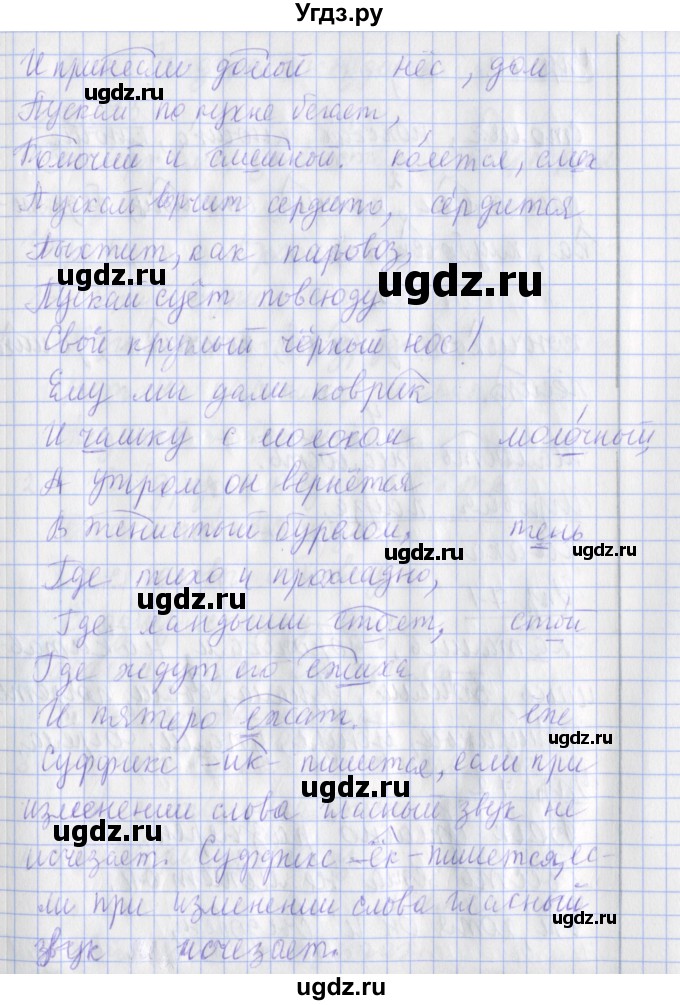 Угдз.ру
И принесли домой нёс, дом
Пускай по кухне бегает,
Колючий и смешной. колется, смех
Пускай урчит сердито, сердится
Пыхтит, как паровоз,
Пускай суёт повсюду
Свой круглый чёрный нос!
Ему мы дали коврик
И чашку с молоком молочный,
А утром он вернётся
В тенистый бурелом, тень
Где тихо и прохладно,
Где ландыши стоят, стой
Где ждут его ежиха
И пятеро ежат. еже
Суффикс -ик- пишется, если при
изменении слова гласный звук не
исчезает. Суффикс -ек- пишется, ес-
ли при изменении слова гласный
звук исчезает.
ugdz.ru
ugdz.ru
ugdz.ru
ugdz.ru
ugdz.ru
ugdz.ru
ugdz.ru
ugdz.ru
ugdz.ru
ugdz.ru
ugdz.ru
ugdz.ru
ugdz.ru